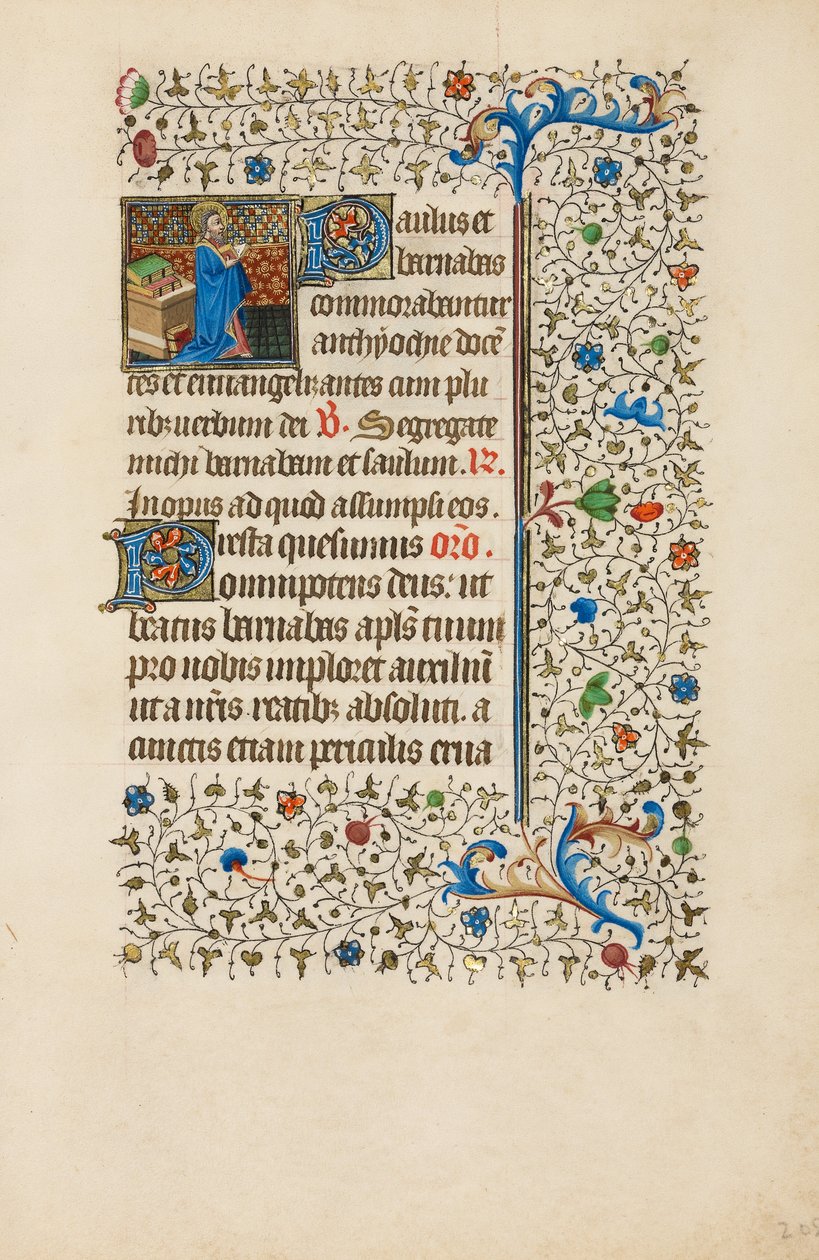 Paulus et
barnabas
commorabantur
anthÿochie docẽ
tes et euuangelizantes cum plu
ribꝫ uerbum dei V. Segregate
michi barnabam et saulum. R.
In opus ad quod assumpsi eos.
Presta quesumus orõ.
omnipotens deus: ut
beatus barnabas apl̃s tuum
pro nobis imploret auxiliũ
ut a nr̃is reatibꝫ absoluti. a
cunctis etiam periculis erua
205